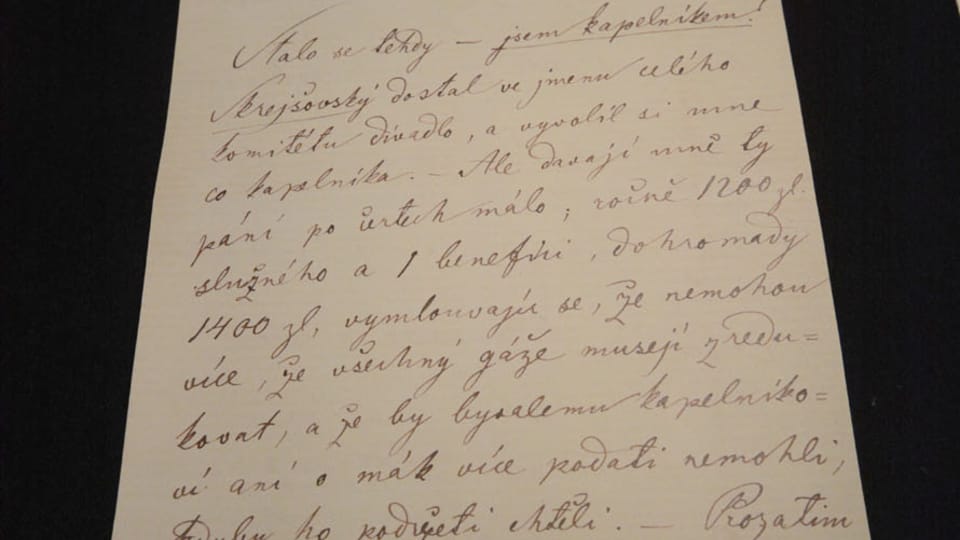 Stalo se tehdy — jsem kapelníkem!
Skrejšovský dostal ve jmenu celého
komitétu divadlo, a vyvolil si mne
co kapelníka. — Ale davají mně ty
páni po čertech málo; ročně 1200 zl.
služného a 1 benefici, dohromady
1400 zl, vymlouvajíc se, že nemohou
více, že všechny gáže musejí zredu=
kovat, a že by byvalemu kapelníko=
vi ani o mák více podati nemohli,
kdyby ho podržeti chtěli. — Prozatim